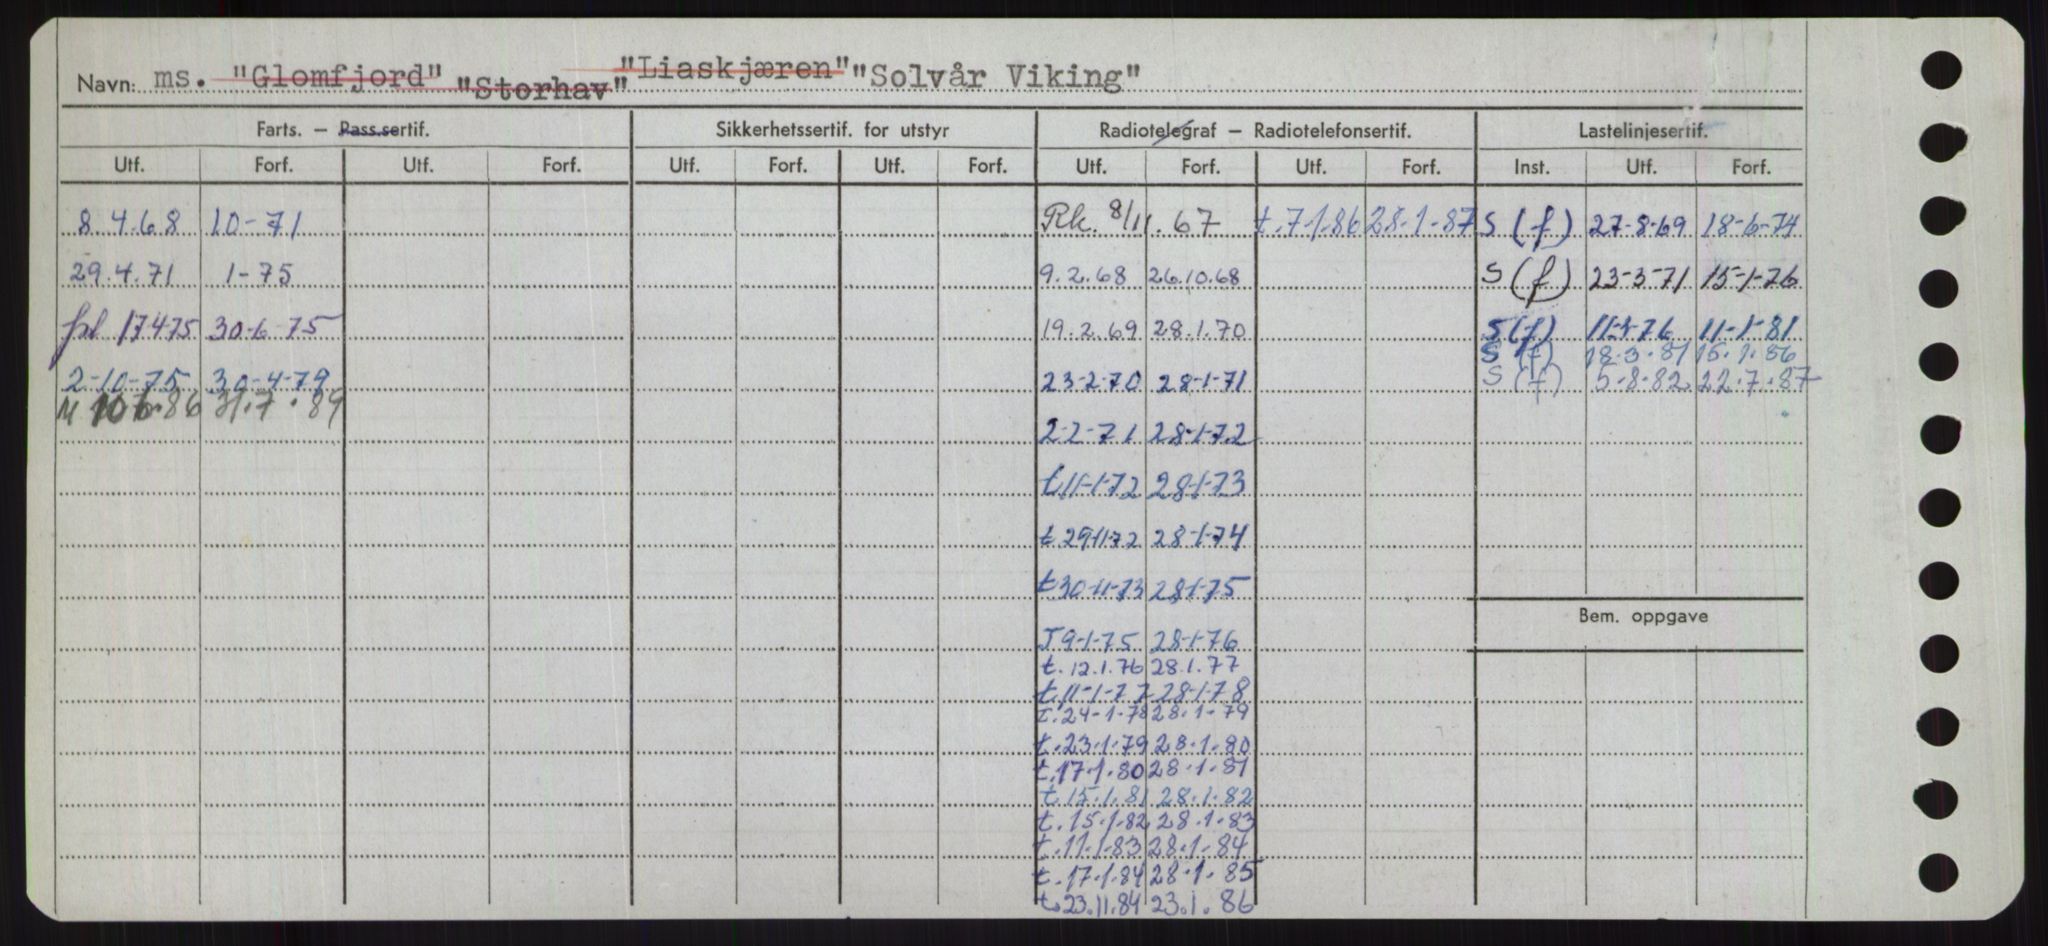 Navn: ms. "Glomfjord" "Storhav" "Liaskjæren" "Solvår Viking"
Farts. — Pass.sertif. Sikkerhetssertif. for utstyr Radiotelegraf — Radiotelefonsertif. Lastelinjesertif.
Utf. Forf. Utf. Forf. Utf. Forf. Utf. Forf. Utf. Forf. Utf. Forf. Inst. Utf. Forf.
8.4.68 10-71 Rk. 8/11.67 t.7.1.86 28.1.87 S (f) 27-8-69 18-6-74
29.4.71 1-75 9.2.68 26.10.68 S (f) 23-3-71 15-1-76
17475 30-6-75 19.2.69 28.1.70 S (f) 11-1-81
S (f) 18.3.81 15.1.86
2-10-75 30-4-79 23-2-70 28-1-71 S (f) 5.8.82 22.7.87
M 31.7.89
2-2-71 28-1-72
t.11-1-72 28-1-73
t.29-11-72 28-1-74
t.30-11-73 28-1-75
T 9-1-75 28-1-76
t. 12.1.76 28.1.77
t.11-1-77 28-1-78
t.24-1-78 28.1-79
t.23.1.79 28.1.80
t.17.1.80 28.1.81
t.15.1.81 28.1.82
t.15.1.82 28.1.83
t.11.1.83 28.1.84
t.17.1.84 28.1.85
t.23.11.84 23.1.86
Bem. oppgave